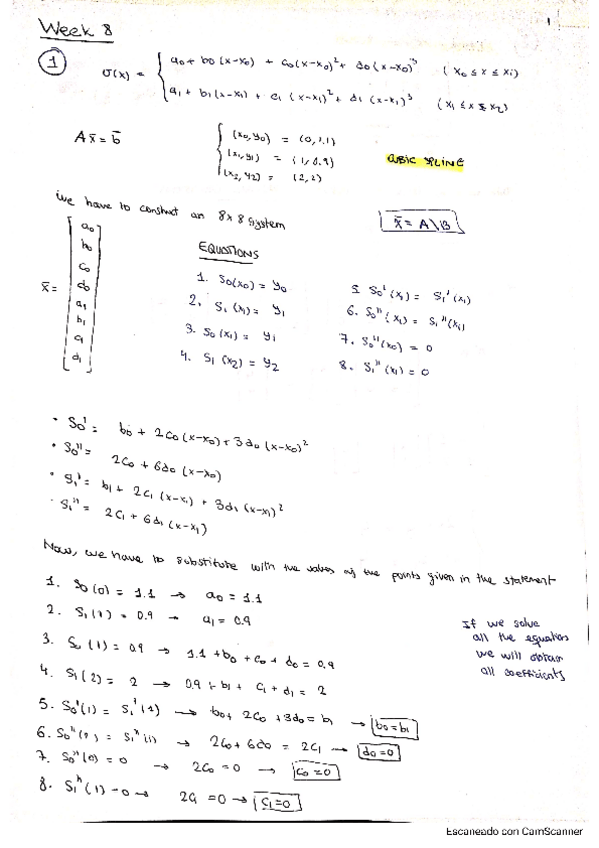 Week 8
1
① σ(x) = { a₀ + b₀(x-x₀) + c₀(x-x₀)² + d₀(x-x₀)³ (x₀ ≤ x ≤ x₁)
a₁ + b₁(x-x₁) + c₁(x-x₁)² + d₁(x-x₁)³ (x₁ ≤ x ≤ x₂)
A x̄ = b̄
{ (x₀,y₀) = (0,1.1)
(x₁,y₁) = (1,0.9)
(x₂,y₂) = (2,2)
CUBIC SPLINE
we have to construct an 8x8 system
x̄ = A\B
x̄ = [ a₀
b₀
c₀
d₀
a₁
b₁
c₁
d₁ ]
EQUATIONS
1. S₀(x₀) = y₀
2. S₁(x₁) = y₁
3. S₀(x₁) = y₁
4. S₁(x₂) = y₂
5. S₀'(x₁) = S₁'(x₁)
6. S₀''(x₁) = S₁''(x₁)
7. S₀''(x₀) = 0
8. S₁''(x₁) = 0
• S₀' = b₀ + 2c₀(x-x₀) + 3d₀(x-x₀)²
• S₀'' = 2c₀ + 6d₀(x-x₀)
• S₁' = b₁ + 2c₁(x-x₁) + 3d₁(x-x₁)²
• S₁'' = 2c₁ + 6d₁(x-x₁)
Now, we have to substitute with the values of the points given in the statement
1. S₀(0) = 1.1 → a₀ = 1.1
2. S₁(1) = 0.9 → a₁ = 0.9
3. S₀(1) = 0.9 → 1.1 + b₀ + c₀ + d₀ = 0.9
4. S₁(2) = 2 → 0.9 + b₁ + c₁ + d₁ = 2
5. S₀'(1) = S₁'(1) → b₀ + 2c₀ + 3d₀ = b₁ → b₀=b₁
6. S₀''(1) = S₁''(1) → 2c₀ + 6d₀ = 2c₁ → d₀=0
7. S₀''(0) = 0 → 2c₀ = 0 → c₀=0
8. S₁''(1) = 0 → 2c₁ = 0 → c₁=0
If we solve
all the equations
we will obtain
all coefficients
Escaneado con CamScanner